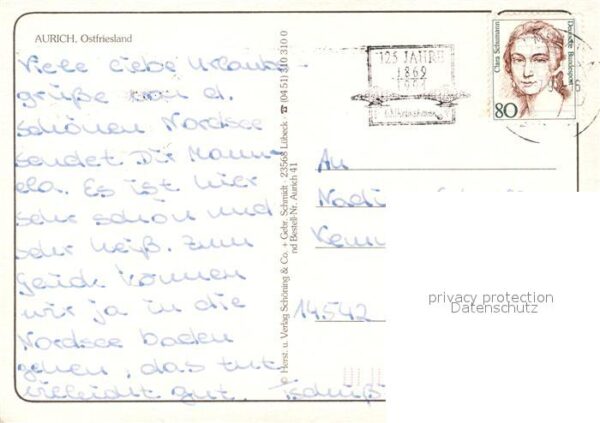 AURICH, Ostfriesland
Viele liebe Urlaubs-
grüße von d.
schönen Nordsee
sendet Dir Manu-
ela. Es ist hier
sehr schön und
sehr heiß. Zum
Glück können
wir ja in die
Nordsee baden
gehen, das tut
vielleicht gut. Tschüß
© Herst. u. Verlag Schöning & Co. + Gebr. Schmidt · 23568 Lübeck · ☎ (04 51) 310 310 0
nd Bestell-Nr. Aurich 41
125 JAHRE
1869
Clara Schumann
Deutsche Bundespost
80
An
14542
privacy protection
Datenschutz